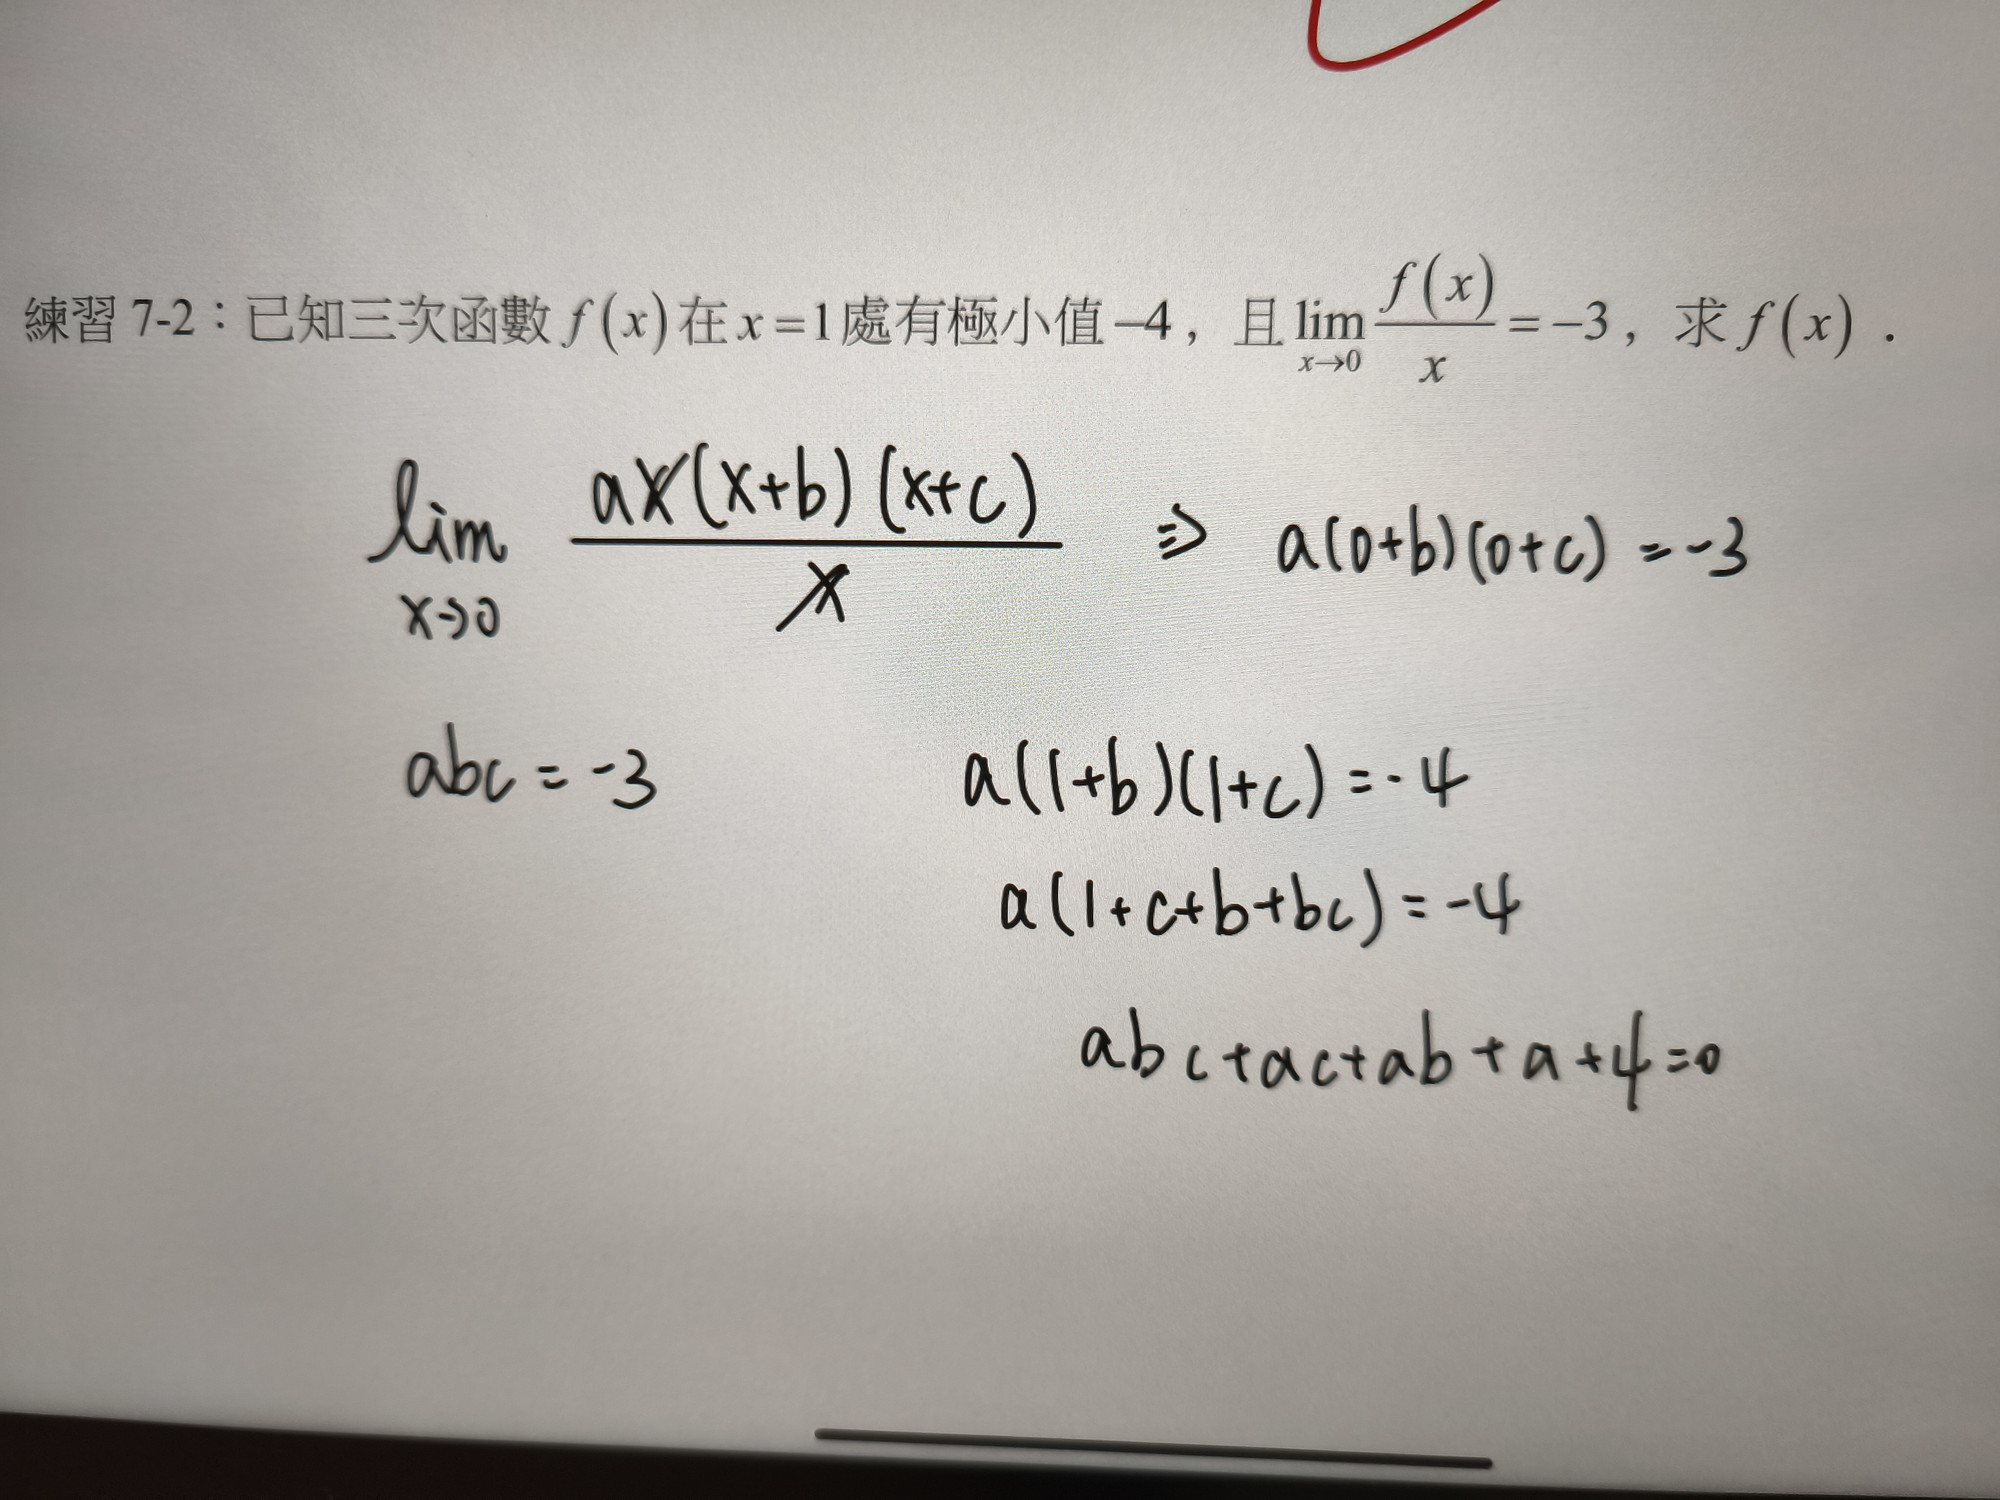 練習 7-2：已知三次函數 f(x) 在 x=1 處有極小值 −4，且 lim_{x→0} f(x)/x = −3，求 f(x)．
lim_{x→0} ax(x+b)(x+c)/x ⇒ a(0+b)(0+c) = -3
abc = -3 a(1+b)(1+c) = -4
a(1+c+b+bc) = -4
abc+ac+ab+a+4=0